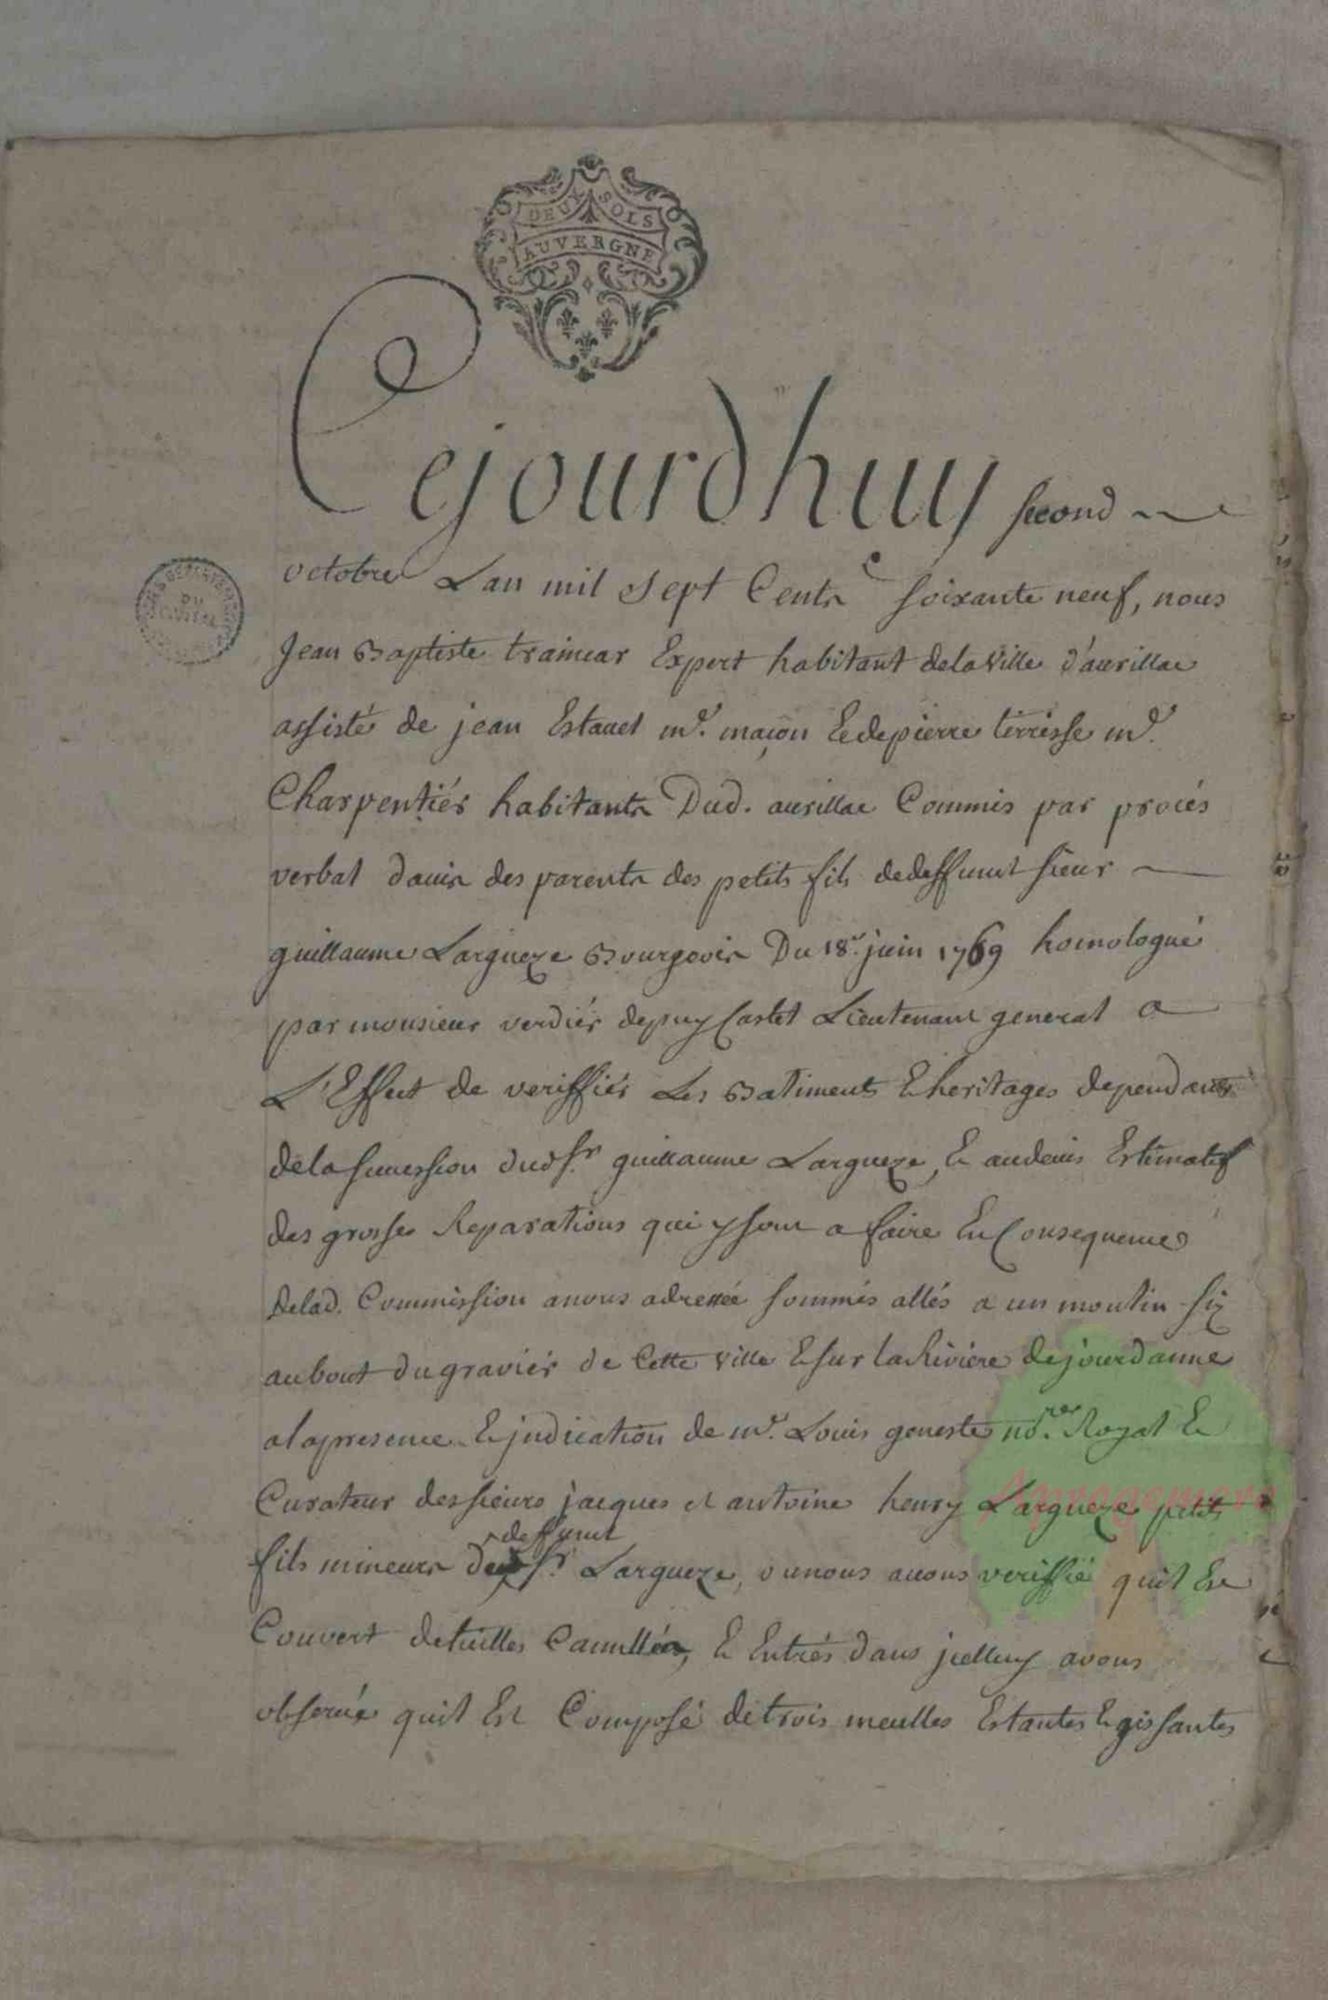 DEUX SOLS
AUVERGNE
Cejourdhuy second
octobre Lan mil sept Cents soixante neuf, nous
Jean Baptiste trainear Expert habitant delaville d'aurillac
assisté de jean Estauel me. maçon Et depierre terrisse me.
Charpentiér habitants Dud. aurillac Commis par procés
verbal dauis des parents des petits fils dedeffunt sieur
guillaume Largueze Bourgeois Du 18e. juin 1769 homologué
par monsieur verdiér depuy Castel Lieutenant general a
L'Effect de veriffiér Les Batiments & heritages dependants
delasuccession dudsr guillaume Largueze, & audeuis Estimatif
des grosses Reparations qui y sont a faire En Consequence
delad. Commission anous adressée sommés allés a un moulin siz
aubout dugraviér de Cette ville & sur la Riviere dejourdanne
alapresence & judication de me. Louis geneste nore. Royal &
Curateur dessieurs jacques et antoine henry Largueze petits
deffunt
fils mineurs de sr. Largueze, ou nous auons veriffié quil Est
Couvert detuilles Canullées, & Entrés dans jcelluy avons
obserué quil Est Composé detrois meulles Estantes & gissantes